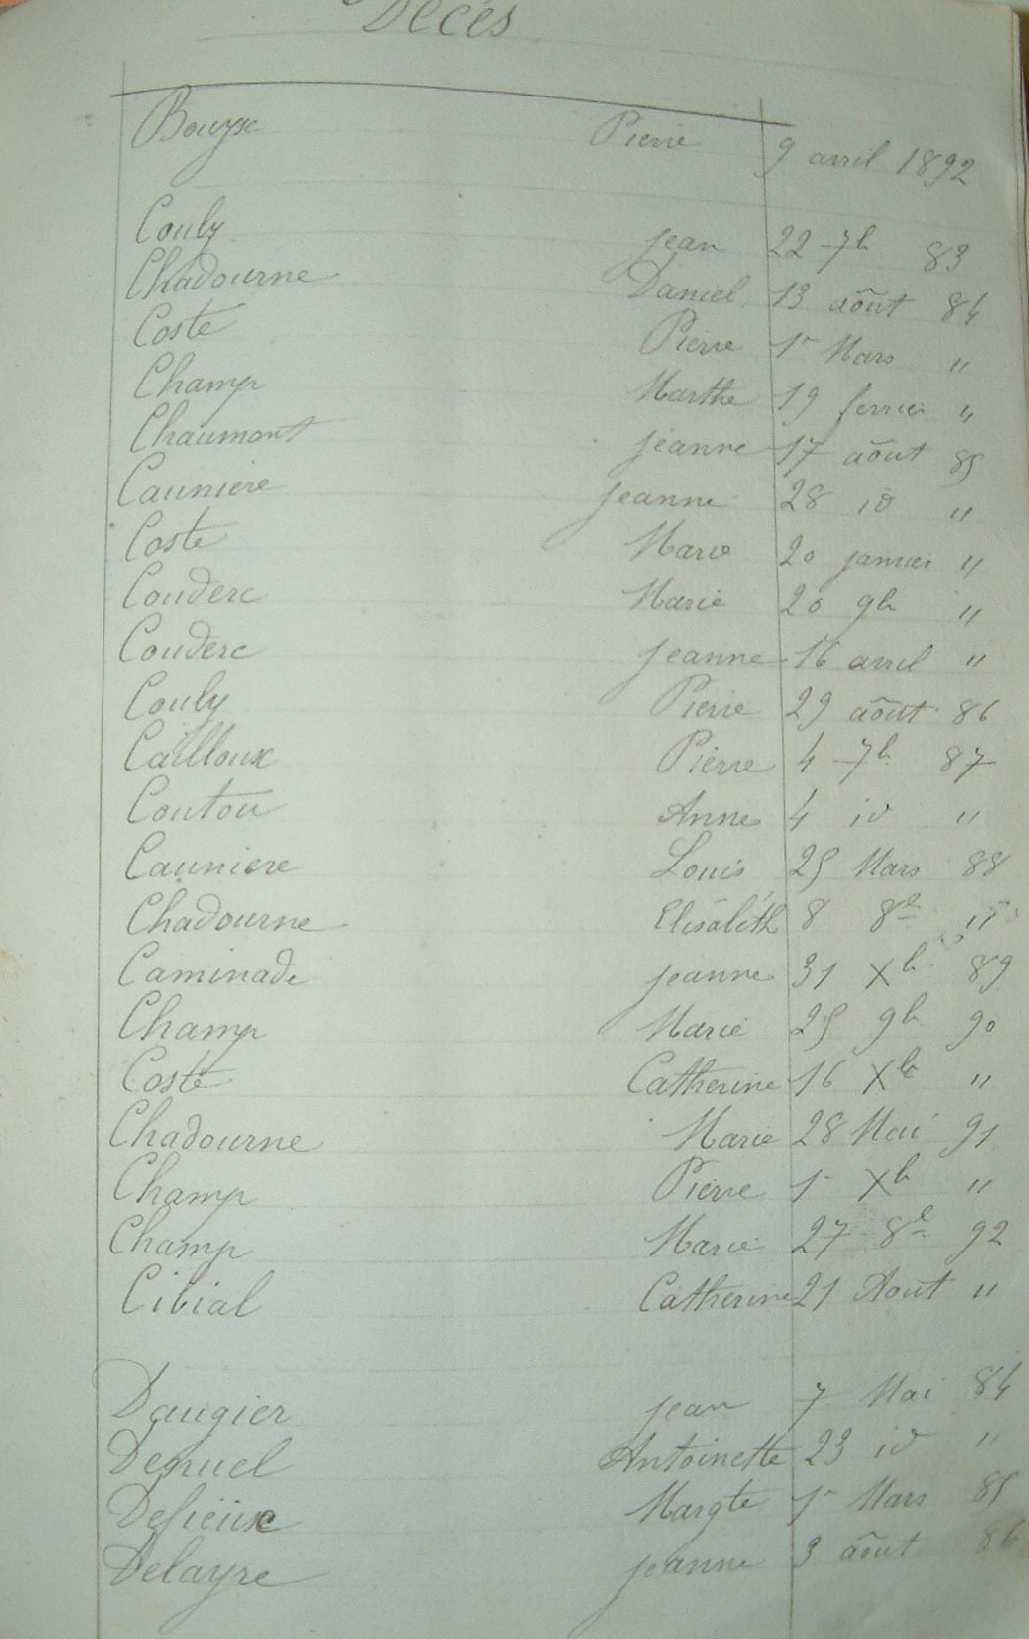 Décès
Bouyse Pierre 9 avril 1892
Couly jean 22 7b 83
Chadourne Daniel 13 août 84
Coste Pierre 1r Mars "
Champ Marthe 19 fevrier "
Chaumont jeanne 17 août 85
Cauniere jeanne 28 id "
Coste Marie 20 janvier "
Couderc Marie 20 9b "
Couderc jeanne 16 avril "
Couly Pierre 29 août 86
Cailloux Pierre 4 7b 87
Coutou Anne 4 id "
Cauniere Louis 25 Mars 88
Chadourne Elisabéth 8 8e "
Caminade jeanne 31 Xb 89
Champ Marie 25 9b 90
Coste Catherine 16 Xb "
Chadourne Marie 28 Mai 91
Champ Pierre 1r Xb "
Champ Marie 27 8e 92
Cibial Catherine 21 Aout "
Daugier jean 7 Mai 84
Depruel Antoinette 23 id "
Margte 1r Mars 85
Delayre jeanne 3 août 86